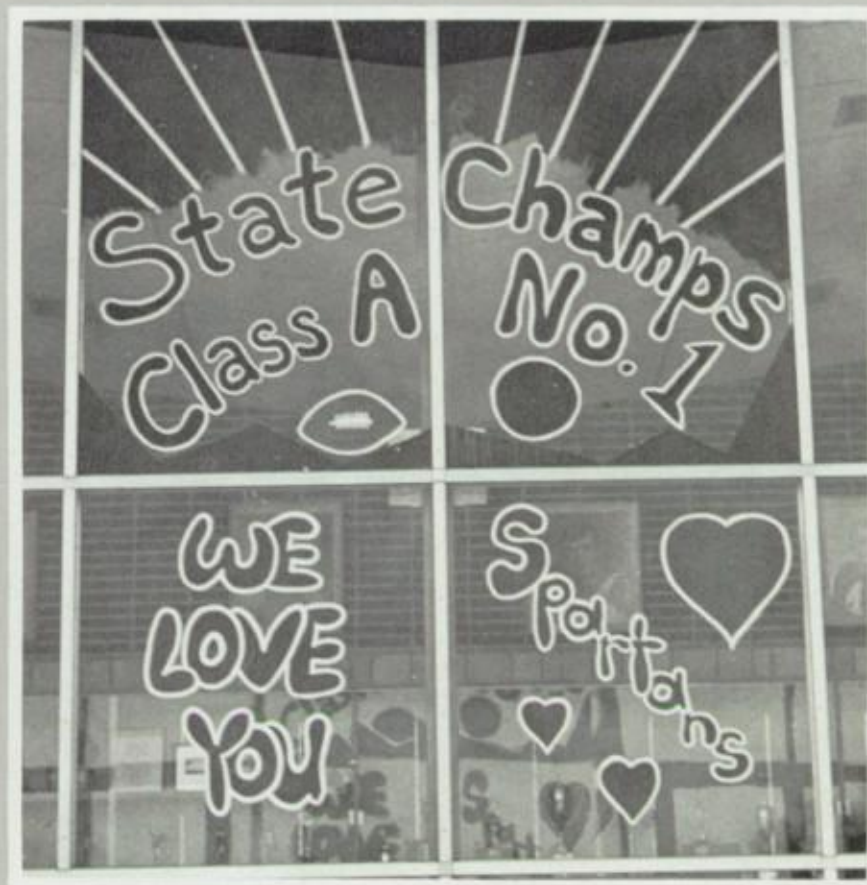 State Champs
Class A No. 1
WE
LOVE
YOU
Spartans